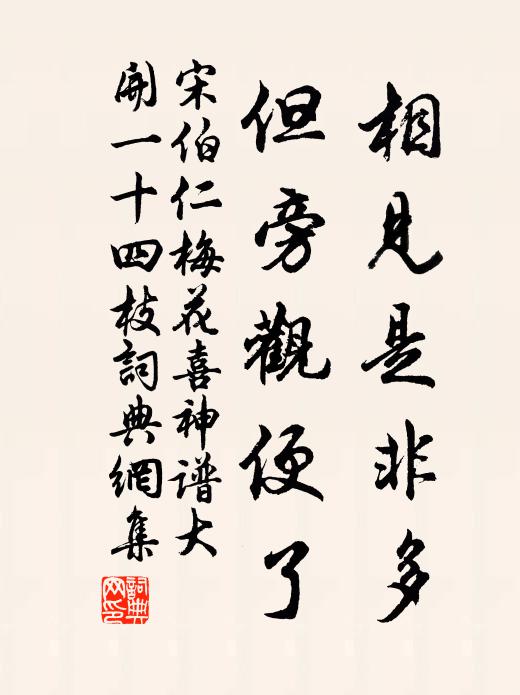 相見是非多
但旁觀便了
宋伯仁梅花喜神譜大
開一十四枝詞典網集
詞典網印